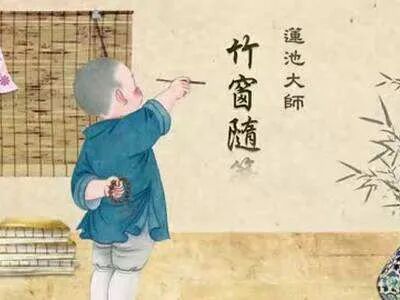 蓮池大師
竹窗隨筆